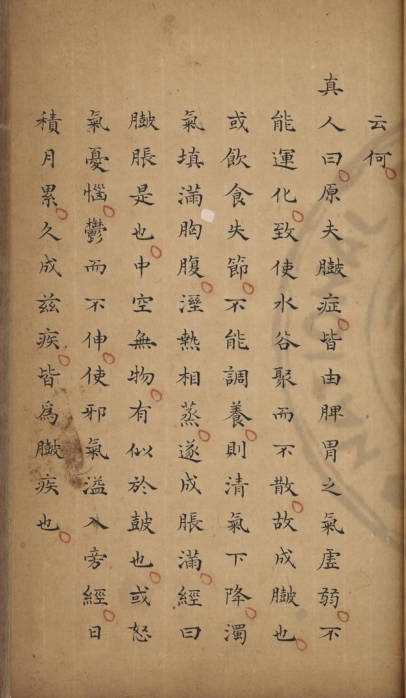 云何
真人曰原夫臌症皆由脾胃之氣虛弱不
能運化致使水谷聚而不散故成臌也
或飲食失節不能調養則清氣下降濁
氣填滿胸腹溼熱相蒸遂成脹滿經曰
臌脹是也中空無物有似於鼓也或怒
氣憂惱鬱而不伸使邪氣溢入旁經日
積月累久成茲疾皆爲臌疾也